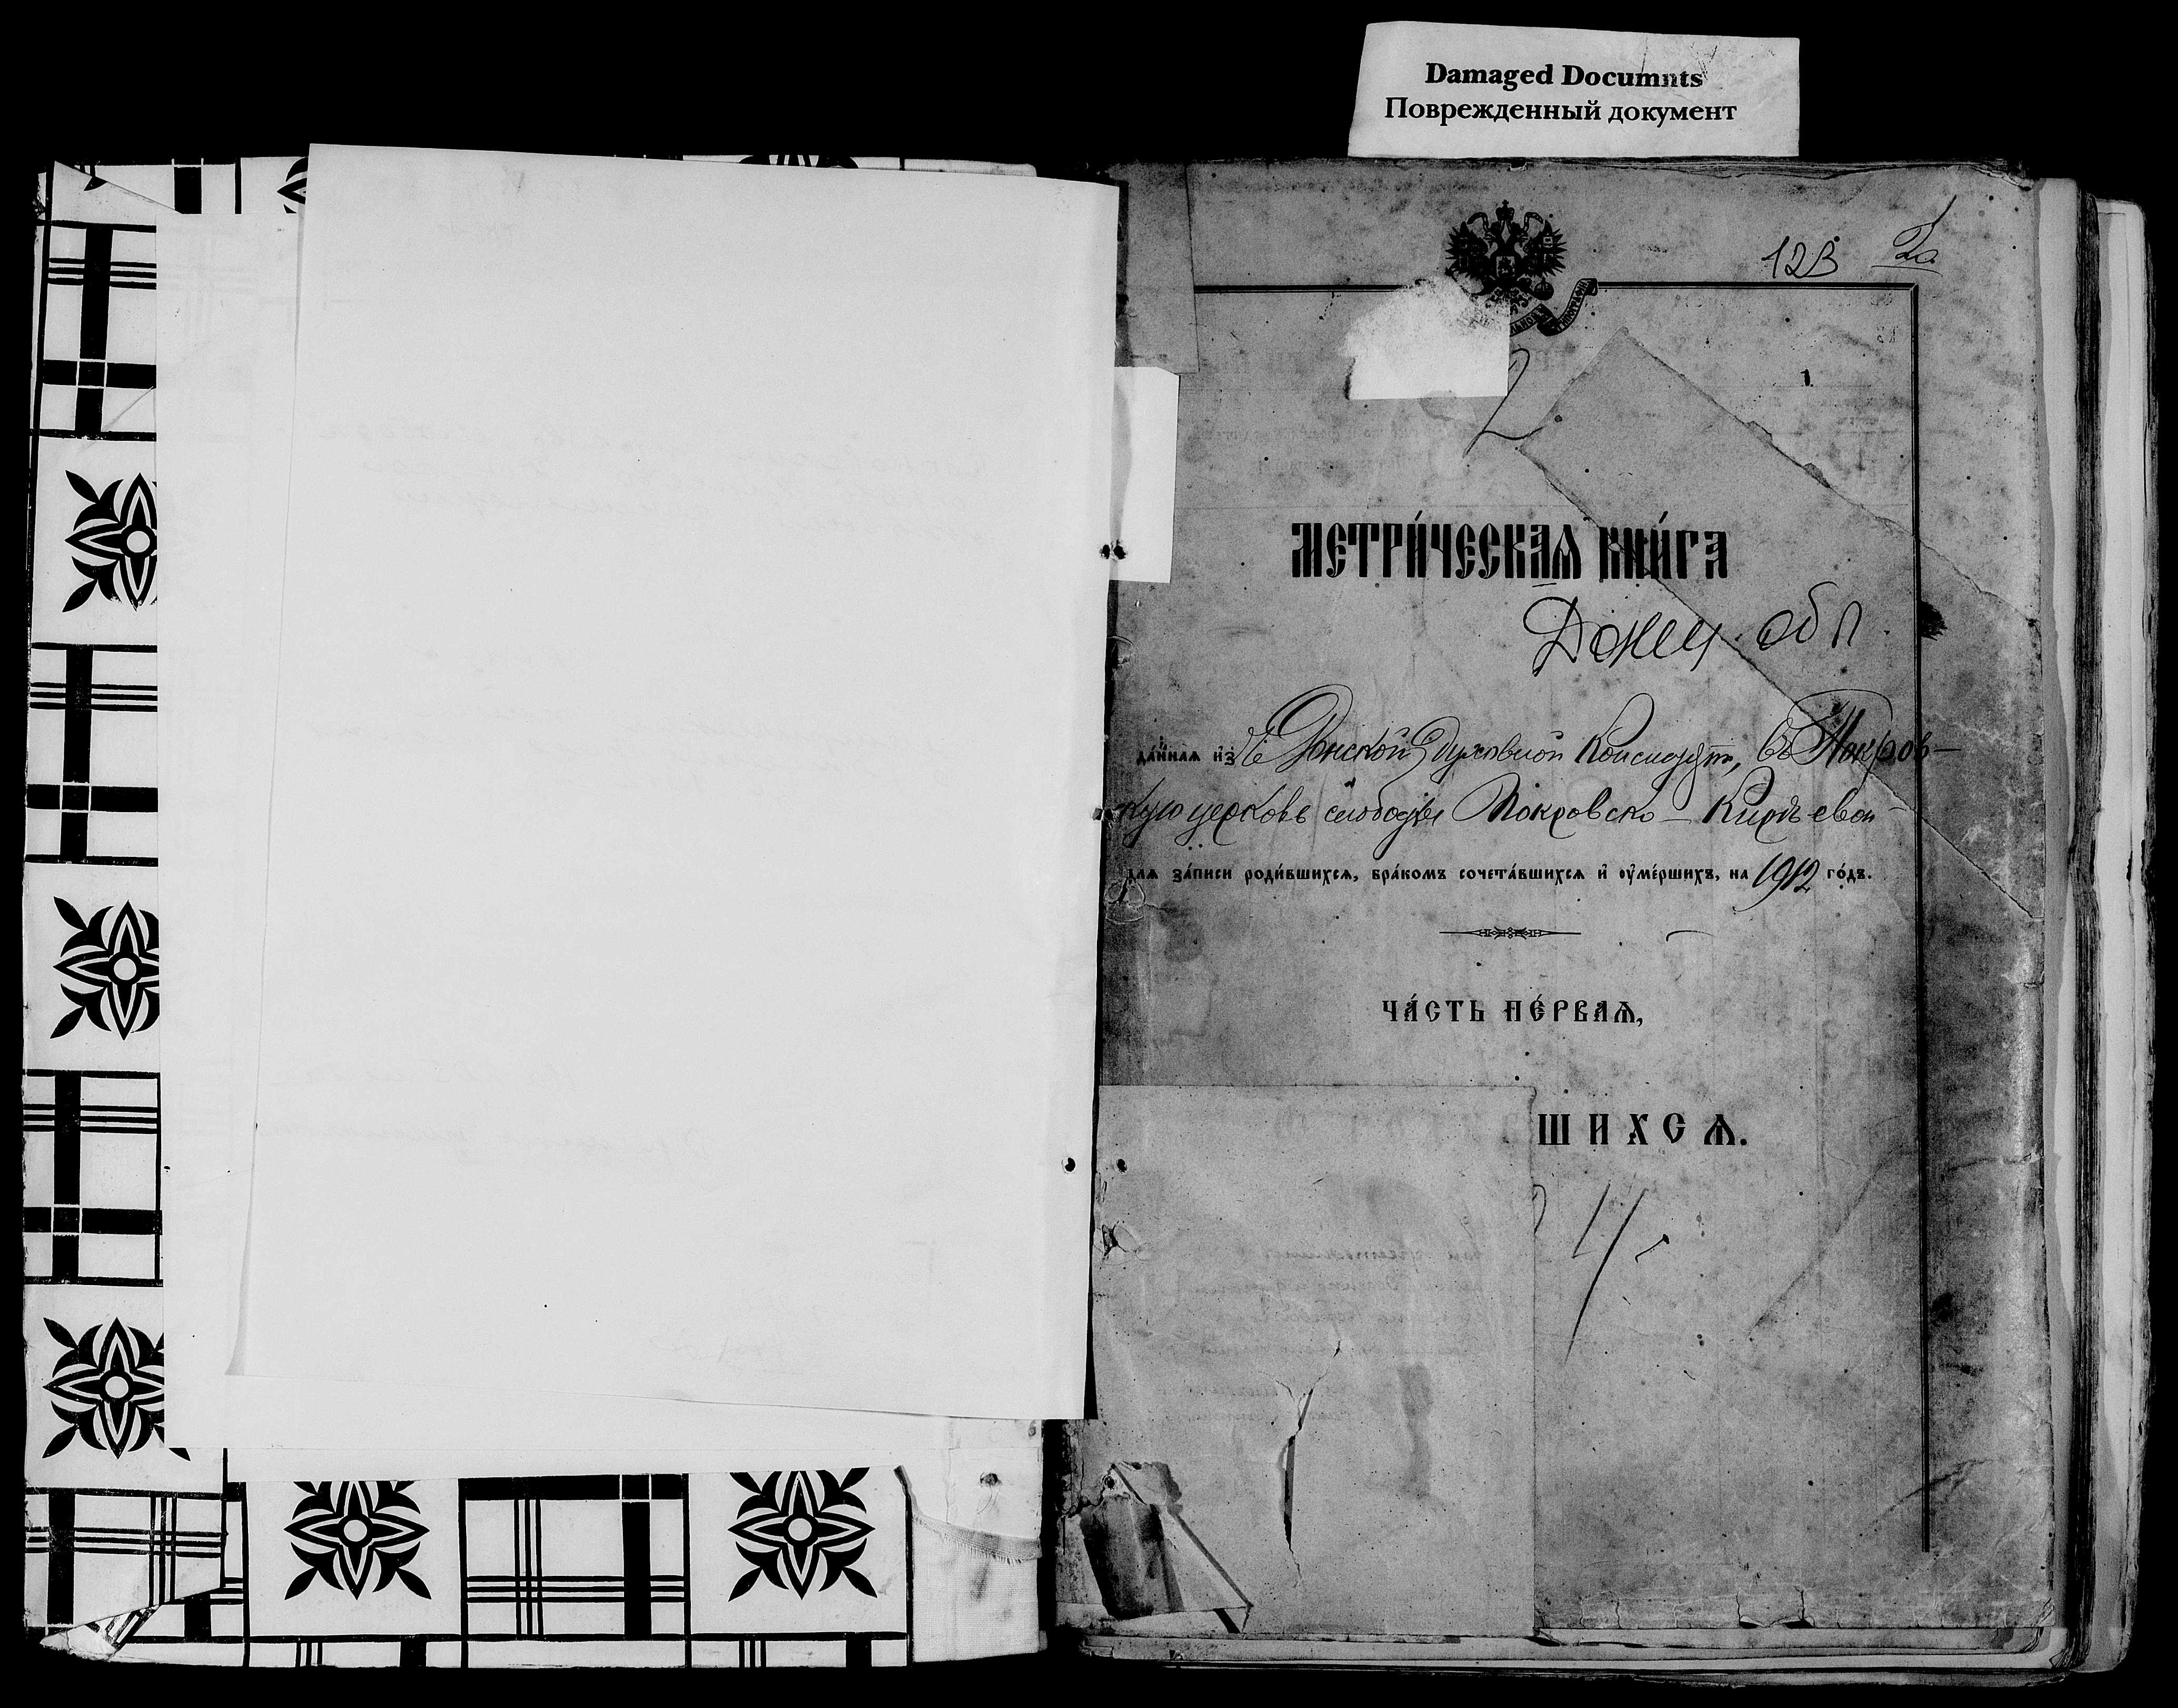 Damaged Documnts
Поврежденный документ
123 2а
2
МЕТРИ́ЧЕСКАѦ КНИ́ГА
Донец. обл.
да́ннаѧ из Донской Духовной Консисторіи, въ Покров-
скую церковь слободы Покровско-Кирѣевой
для за́писи роди́вшихсѧ, бра́комъ сочета́вшихсѧ и҆ ᲂу҆ме́ршихъ, на 1912 го́дъ.
ЧА́СТЬ ПЕ́РВАѦ,
ШИХСѦ.